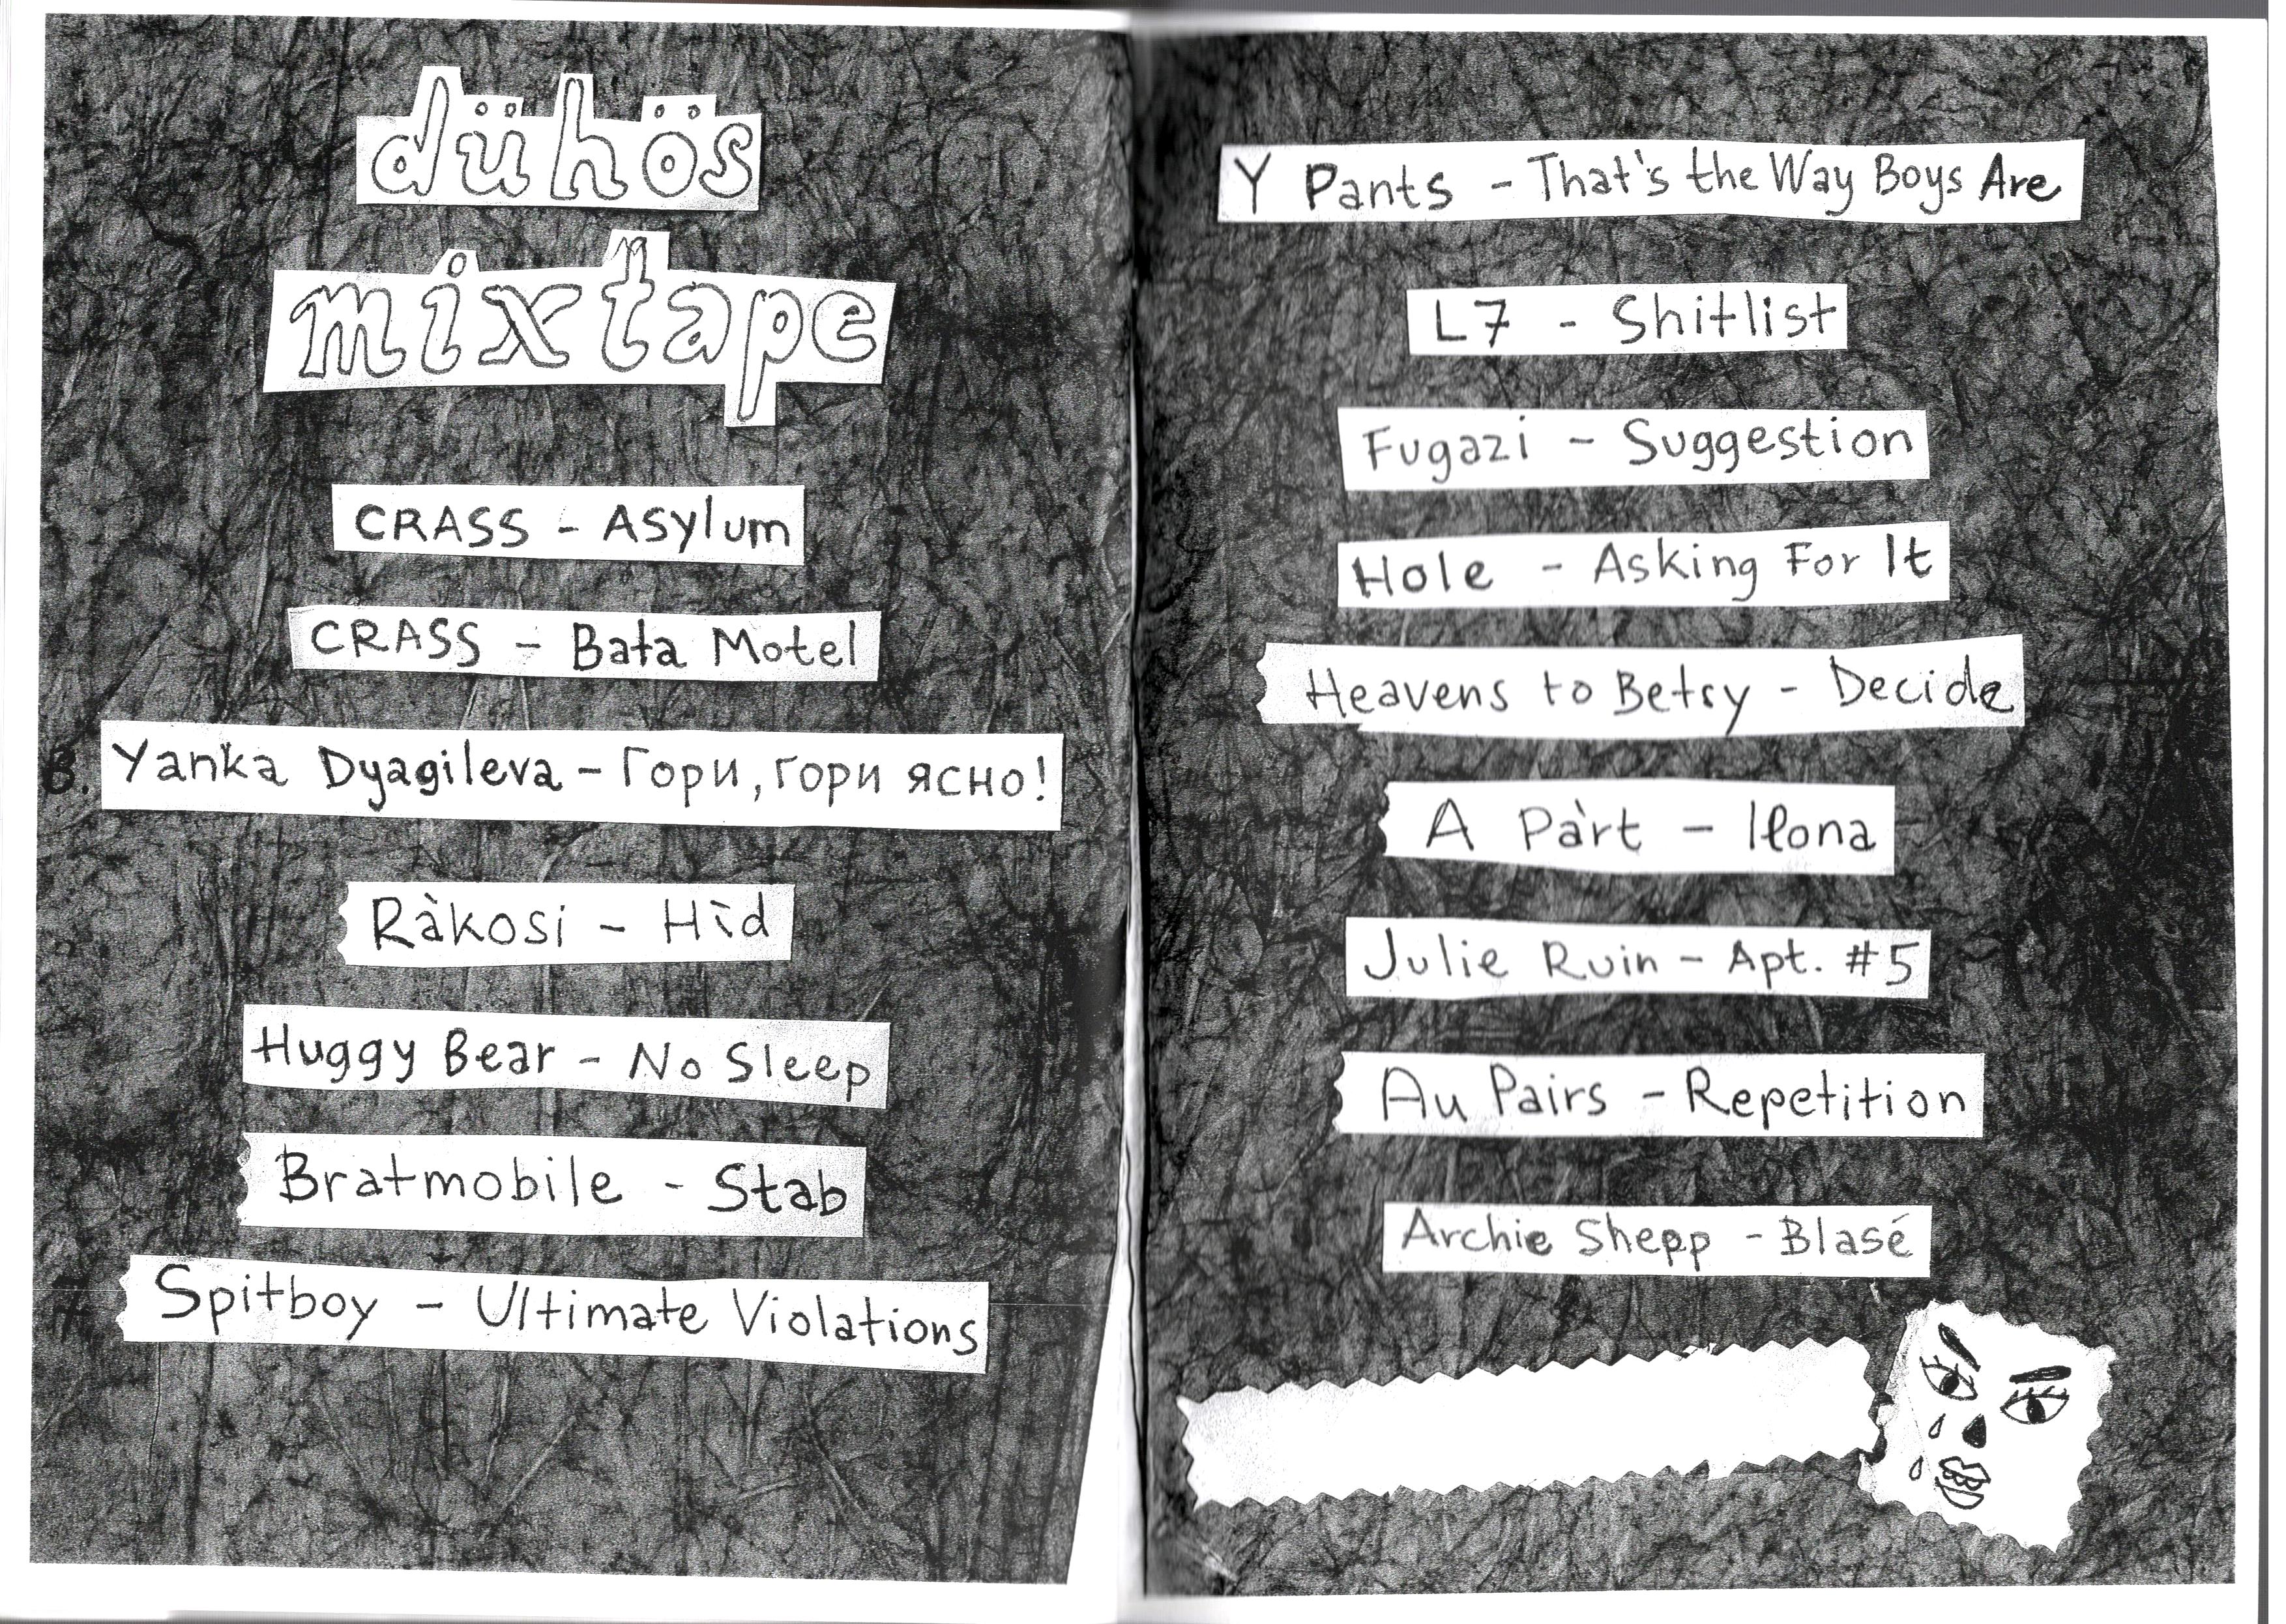 dühös
mixtape
CRASS - Asylum
CRASS - Bata Motel
Yanka Dyagileva - Гори, гори ясно!
Ràkosi - Hīd
Huggy Bear - No Sleep
Bratmobile - Stab
Spitboy - Ultimate Violations
Y Pants - That's the Way Boys Are
L7 - Shitlist
Fugazi - Suggestion
Hole - Asking For It
Heavens to Betsy - Decide
A Pàrt - Ilona
Julie Ruin - Apt. #5
Au Pairs - Repetition
Archie Shepp - Blasé